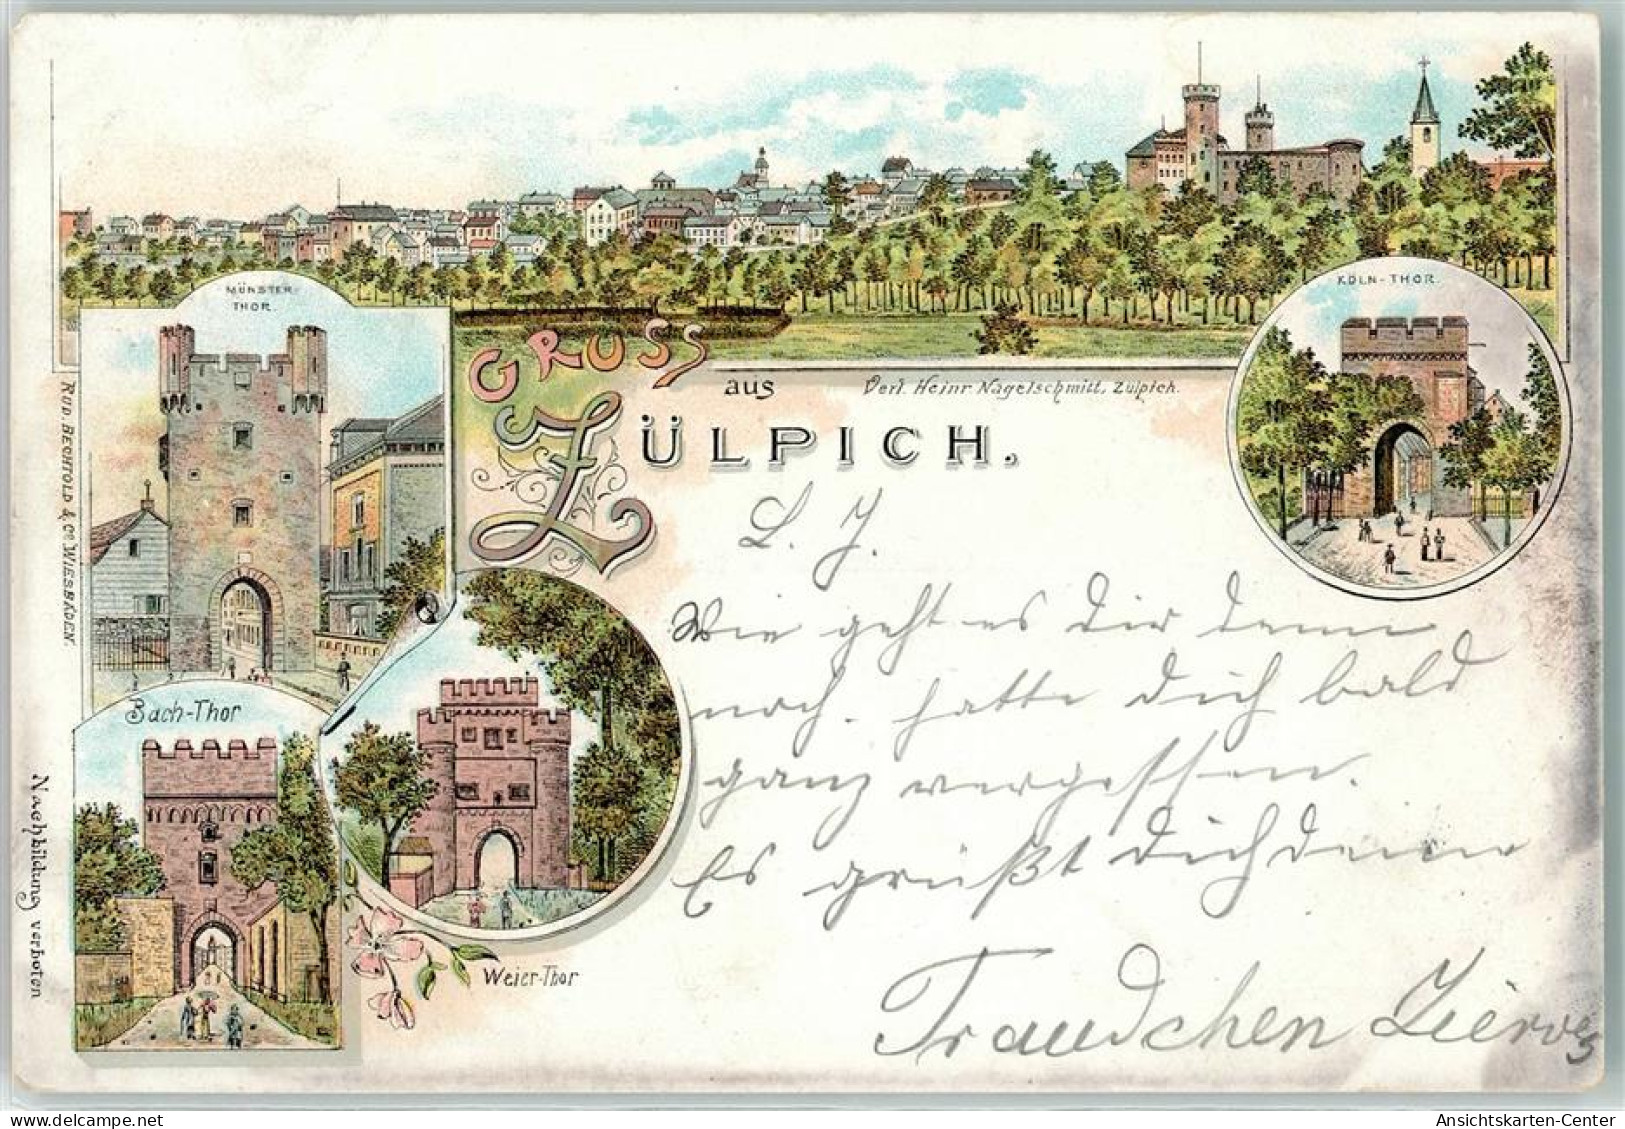 MÜNSTER-
THOR.
KÖLN-THOR.
GRUSS
aus
Verl. Heinr. Nagelschmitt, Zülpich.
ZÜLPICH.
RUD. BECHTOLD & Co. WIESBADEN.
L. J.
Wie geht es Dir denn
noch. hatte Dich bald
ganz vergessen.
Es grüßt Dich deine
Traudchen
Bach-Thor
Weier-Thor
Nachbildung verboten
Ansichtskarten-Center